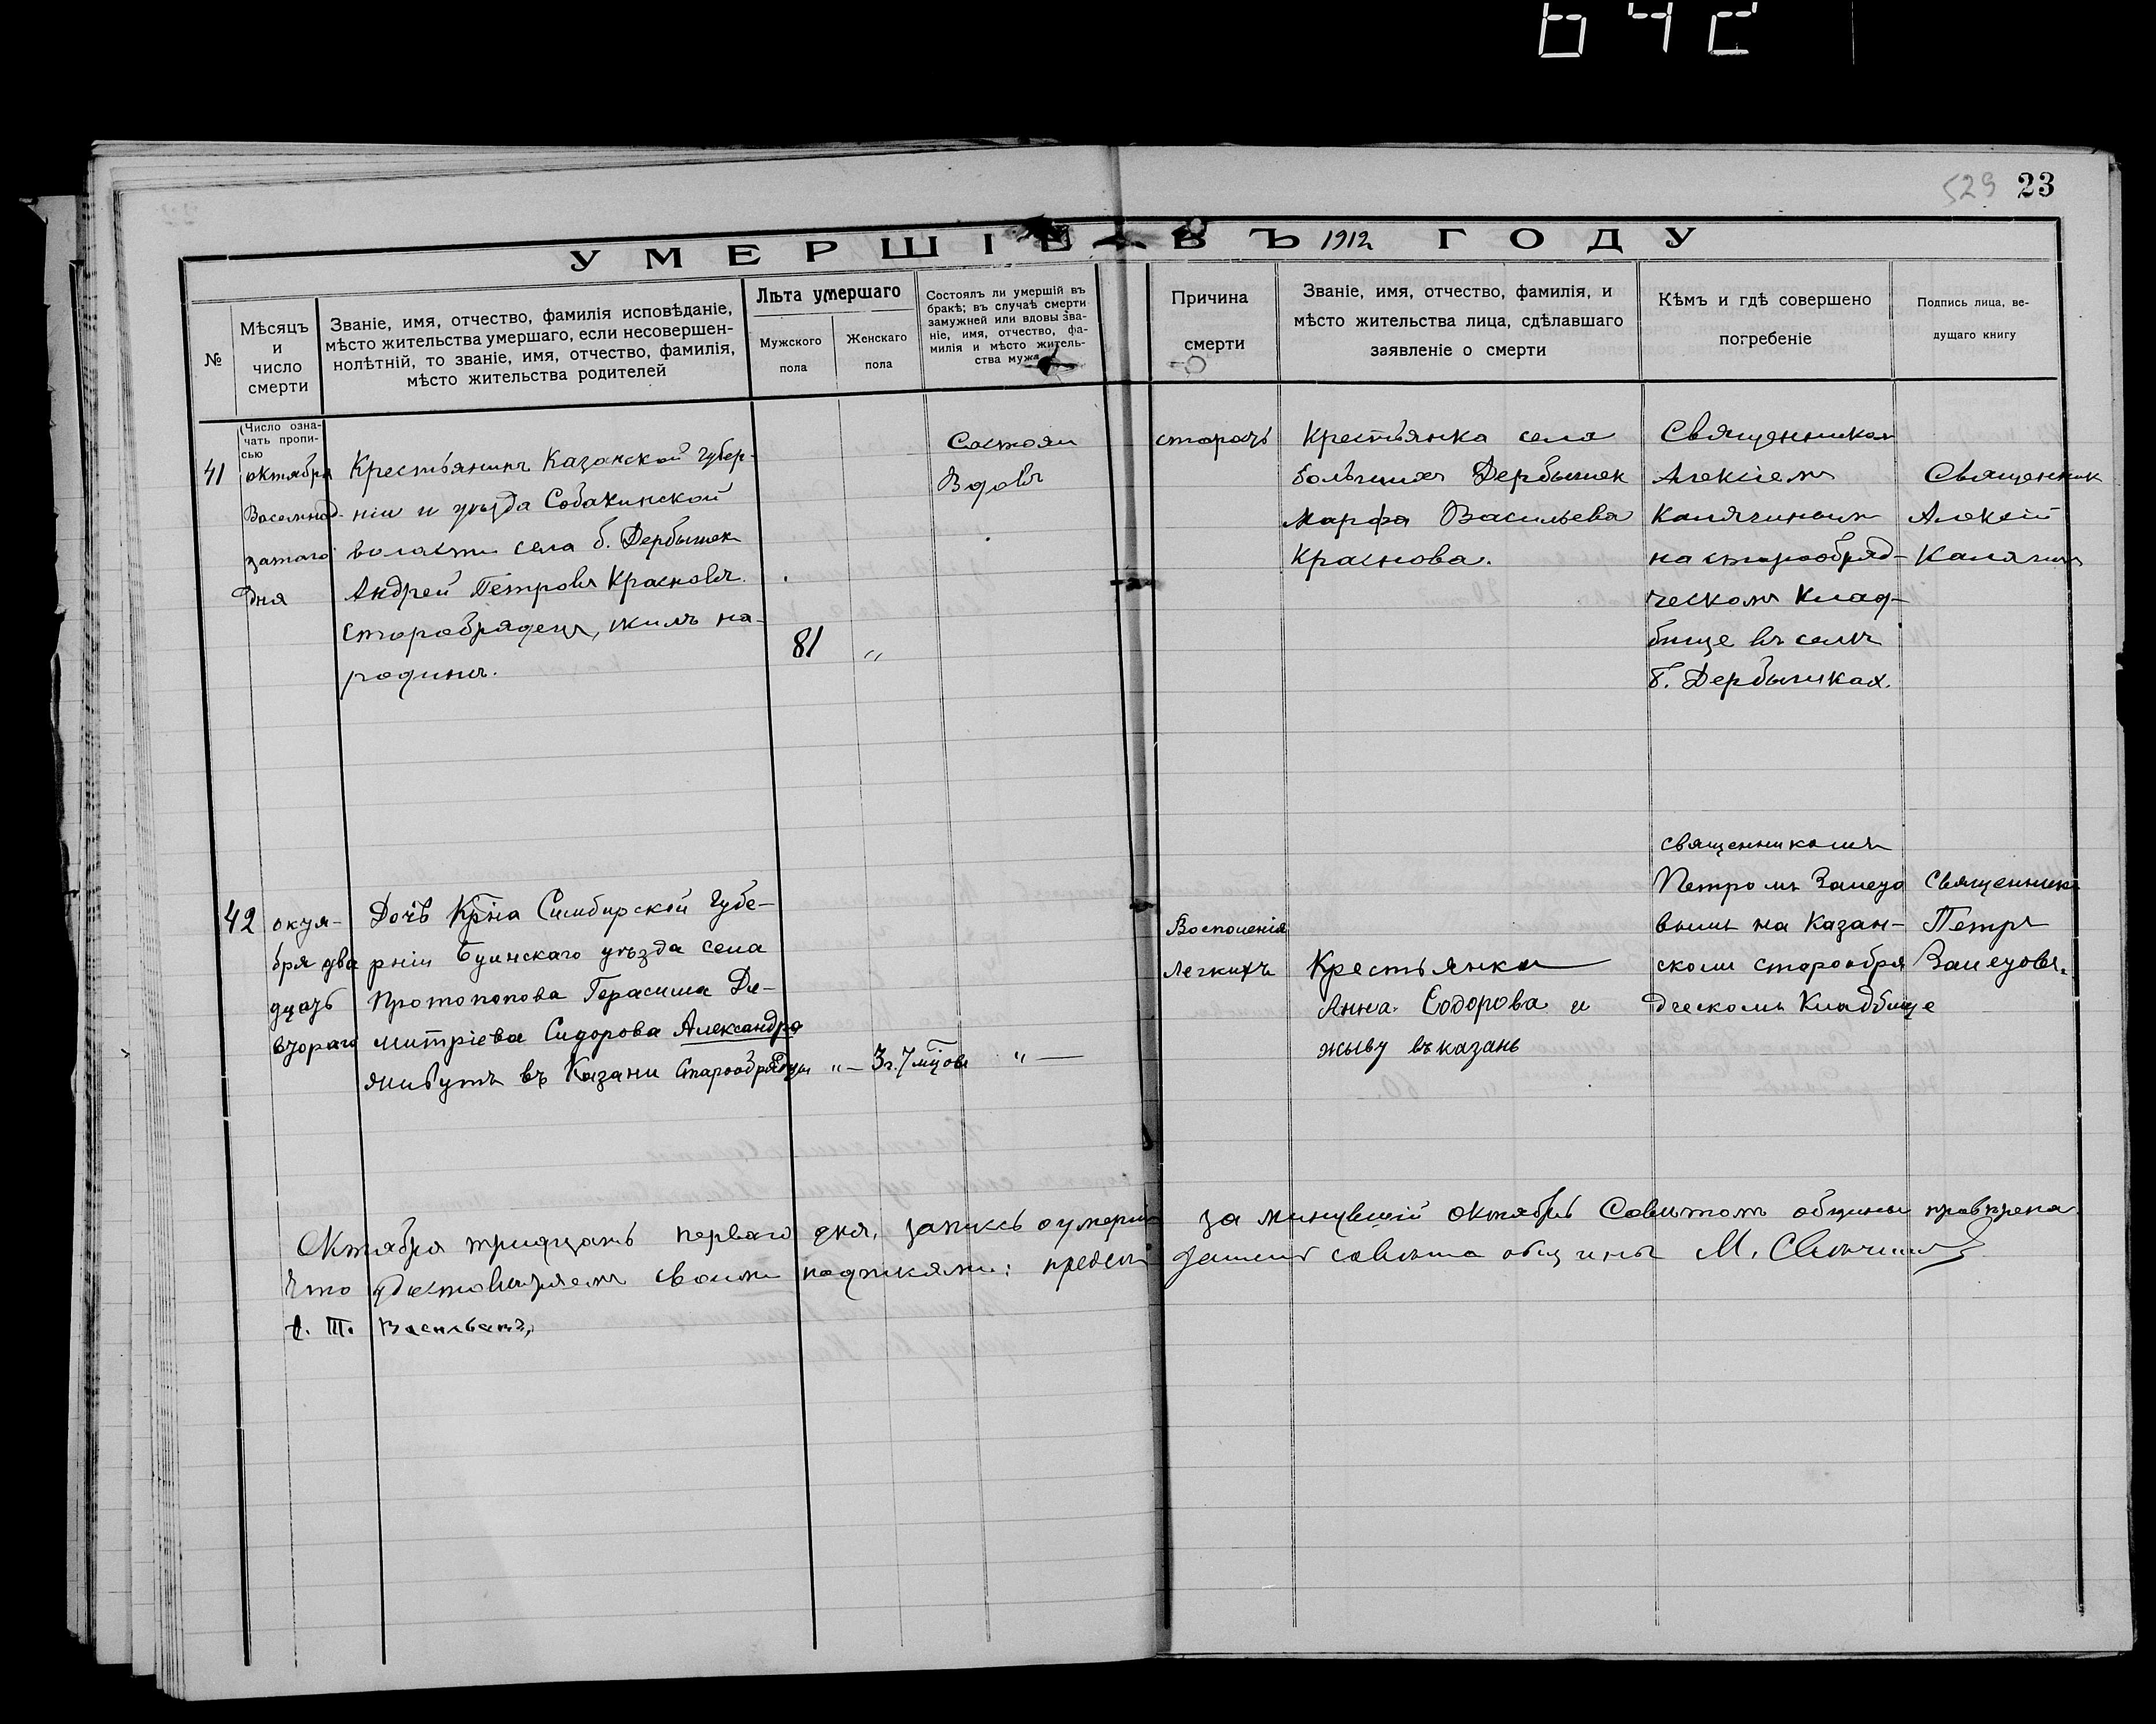 642
529 23
УМЕРШІЕ ВЪ 1912 ГОДУ
№
Мѣсяцъ
и
число
смерти
Званіе, имя, отчество, фамилія исповѣданіе,
мѣсто жительства умершаго, если несовершен-
нолѣтній, то званіе, имя, отчество, фамилія,
мѣсто жительства родителей
Лѣта умершаго
Мужского
пола
Женскаго
пола
Состоялъ ли умершій въ
бракѣ; въ случаѣ смерти
замужней или вдовы зва-
ніе, имя, отчество, фа-
милія и мѣсто житель-
ства мужа
Причина
смерти
Званіе, имя, отчество, фамилія, и
мѣсто жительства лица, сдѣлавшаго
заявленіе о смерти
Кѣмъ и гдѣ совершено
погребеніе
Подпись лица, ве-
дущаго книгу
(Число озна-
чать пропи-
сью
41
октября
Восемнад-
затаго
дня
Крестьянинъ Казанской Губер-
ніи и уѣзда Собакинской
волости села б. Дербышек
Андрей Петровъ Красновъ.
Старобрядецъ, жилъ на-
родинѣ.
81
"
Состоял
Вдовъ
старость
Крестьянка села
большихъ Дербышек
Марфа Васильева
Краснова.
Священником
Алексіемъ
Калягинымъ
на старообряд-
ческомъ Клад-
бище въ селѣ
б. Дербышках.
Священник
Алексѣй
Калягинъ
42
октя-
бря два
дцать
втораго
Дочь Крѣна Симбирской Губе-
рніи Буинскаго уѣзда села
Протопопова Герасима Ди-
митріева Сидорова Александра
живутъ въ Казани Старообрядцы
" — 3г. 7 мцовъ " —
Восполенія
Легкихъ
Крестьянка
Анна Содорова и
жыву въ казань
священникомъ
Петромъ Залето
вымъ на Казан-
ском старообря
дческомъ Кладбище
Священникъ
Петръ
Залетовъ.
Октября тридцать перваго дня, запись о умерш за минувшій октябрь Совѣтомъ общины провѣрена
Что удостовѣряемъ своими подписями: предсѣ датель совѣта общины М.
Васильевъ,